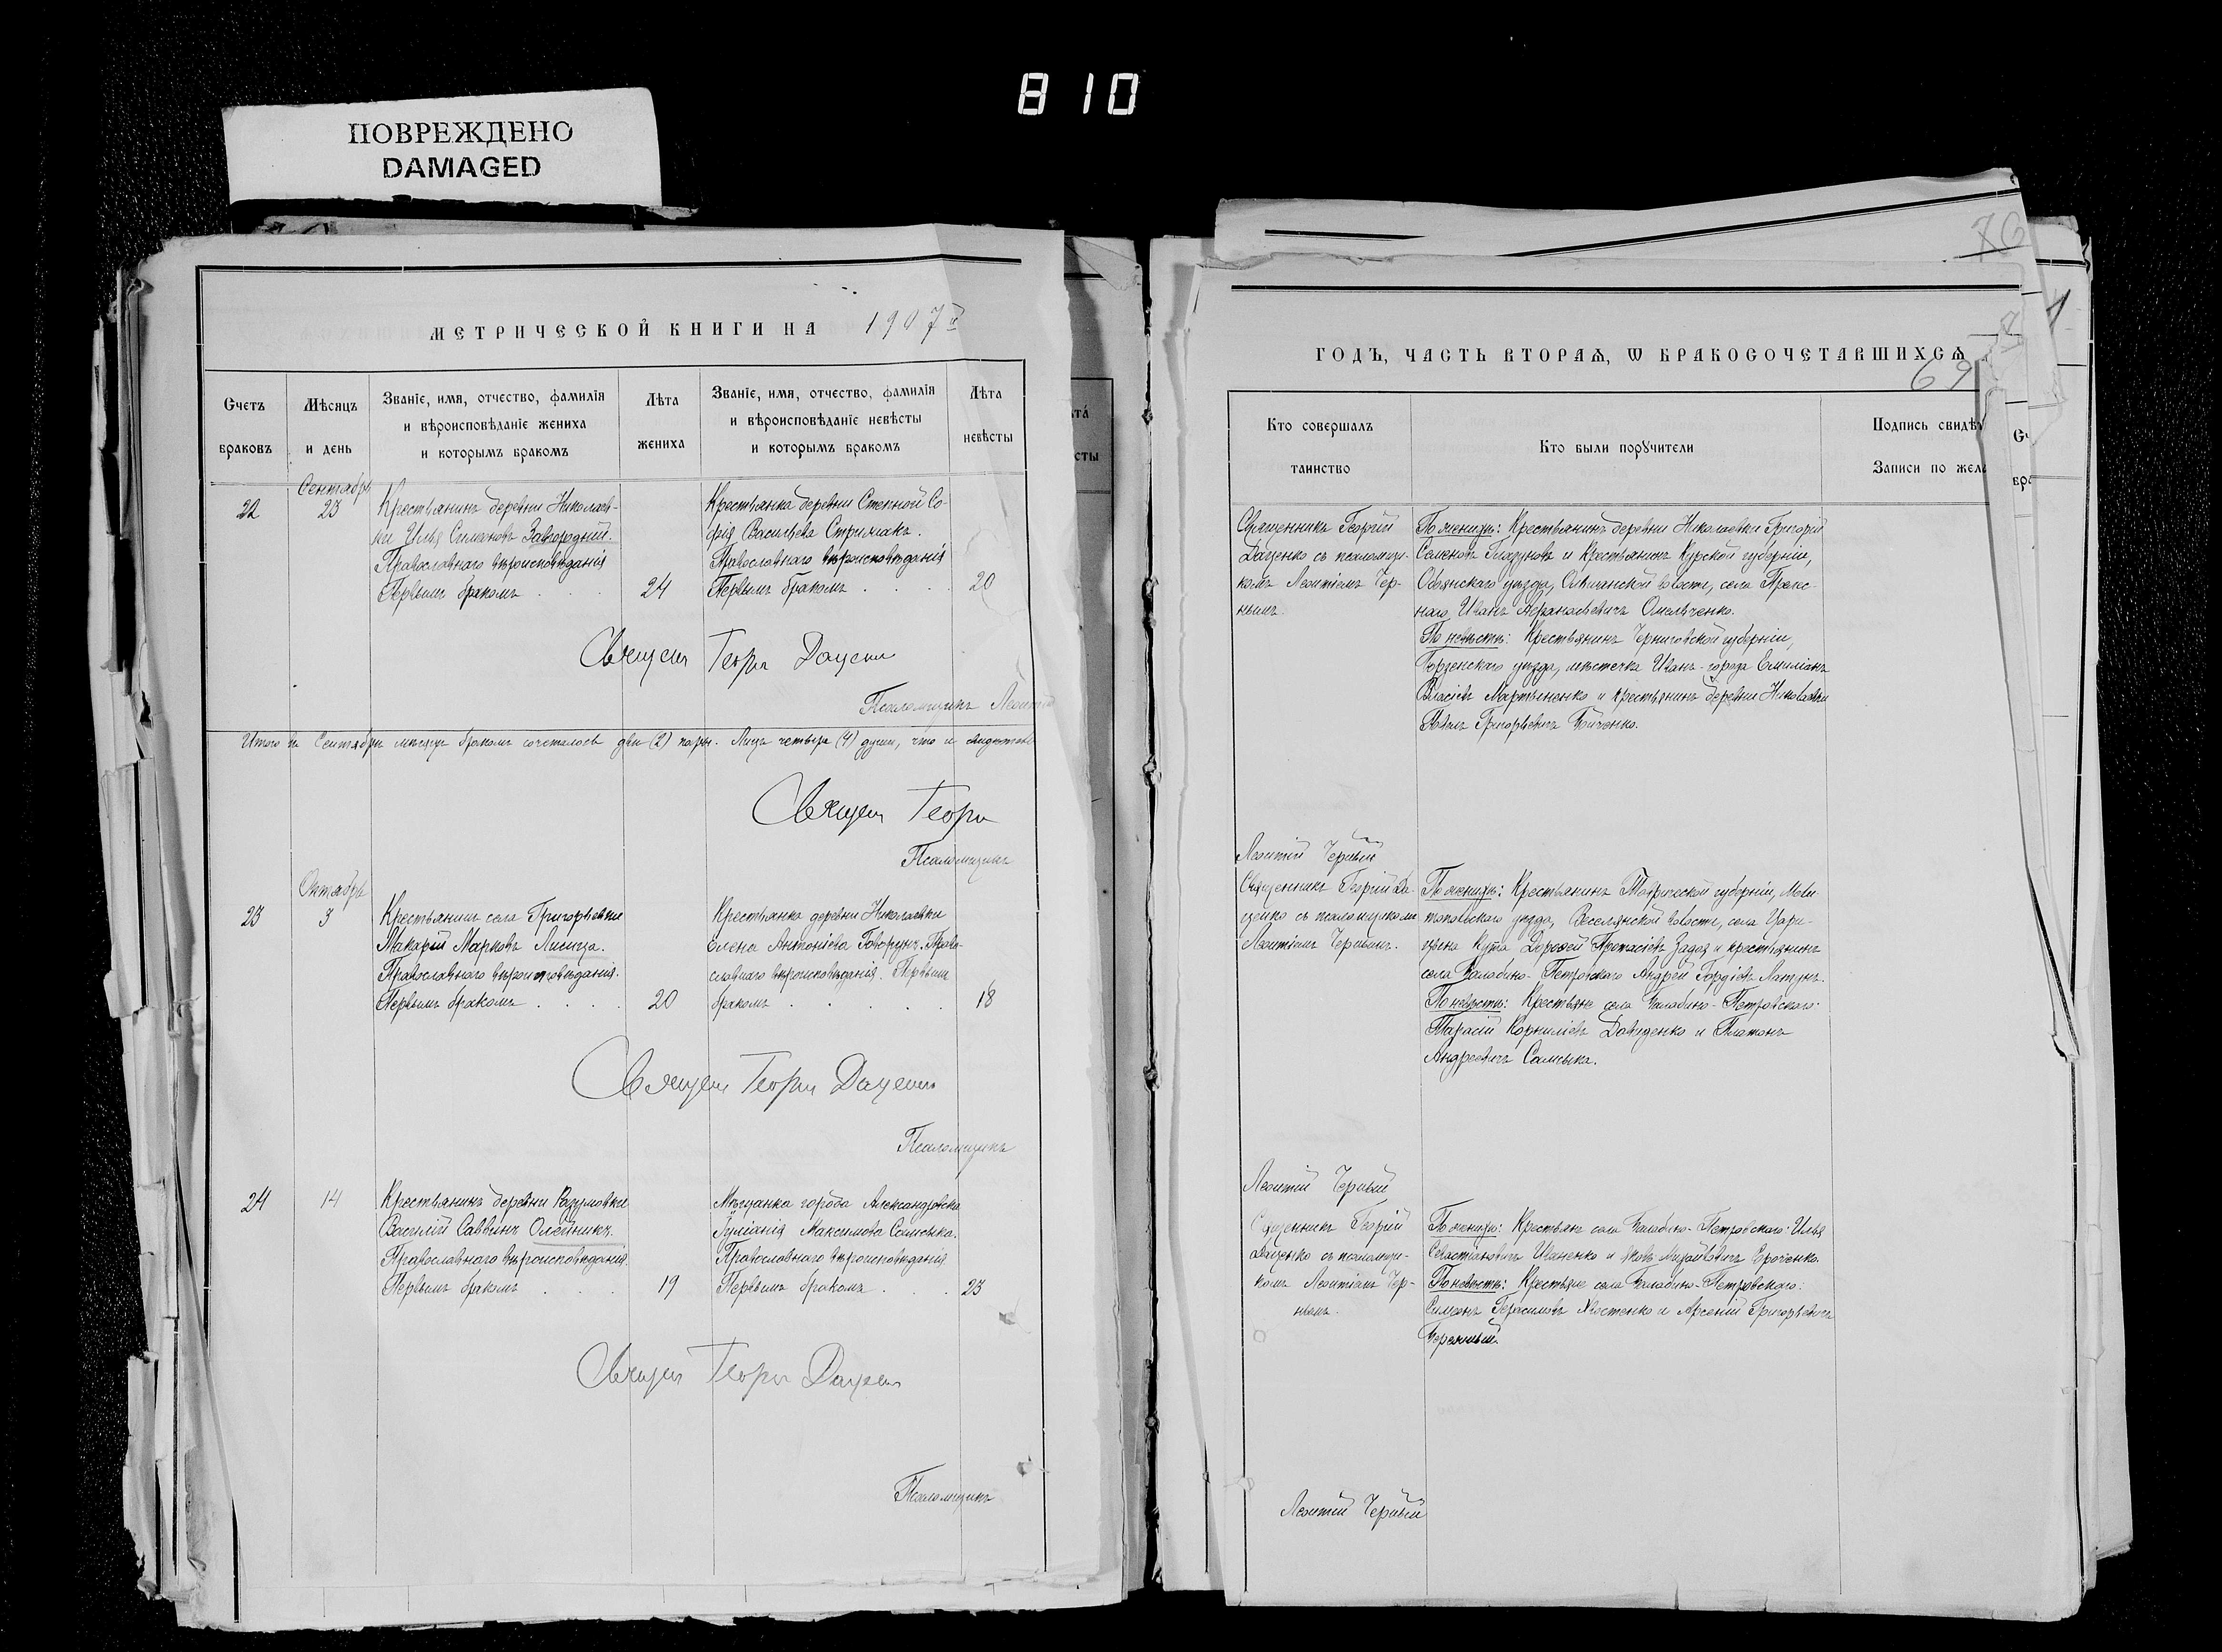 810
ПОВРЕЖДЕНО
DAMAGED
76
МЕТРИЧЕСКОЙ КНИГИ НА 1907й
Счетъ
браковъ
Мѣсяцъ
и день
Званіе, имя, отчество, фамилія
и вѣроисповѣданіе жениха
и которымъ бракомъ
Лѣта
жениха
Званіе, имя, отчество, фамилія
и вѣроисповѣданіе невѣсты
и которымъ бракомъ
Лѣта
невѣсты
Сентябрь
22
23
Крестьянинъ деревни Николаев-
ки Илья Симеоновъ Завгородній.
Православнаго вѣроисповѣданія
Первымъ бракомъ
24
Крестьянка деревни Степной Со-
фія Васильева Стрижакъ.
Православнаго вѣроисповѣданія
Первымъ бракомъ
20
Священ Георги Даценк
Псаломщикъ Леонтій
Итого въ Сентябрѣ мѣсяцѣ бракомъ сочеталось двѣ (2) пары. Лицъ четыре (4) души, что и
Священ Георги
Псаломщикъ
Октябрь
23
3
Крестьянинъ села Григорьевки
Макарій Марковъ Лисица.
Православнаго вѣроисповѣданія.
Первымъ бракомъ
20
Крестьянка деревни Николаевки
Елена Антоніева Говорунъ. Право-
славнаго вѣроисповѣданія. Первымъ
бракомъ
18
Священ Георги Даценко
Псаломщикъ
24
14
Крестьянинъ деревни Разумовки
Василій Саввинъ Олейникъ.
Православнаго вѣроисповѣданія.
Первымъ бракомъ
19
Мѣщанка города Александровска
Іуліанія Максимова Самсыка.
Православнаго вѣроисповѣданія
Первымъ бракомъ
23
Священ Георги Даценк
Псаломщикъ
ГОДЪ, ЧАСТЬ ВТОРАЯ, Ѡ БРАКОСОЧЕТАВШИХСЯ
69
Кто совершалъ
таинство
Кто были поручители
Подпись свидѣ
Записи по жела
Священникъ Георгій
Даценко съ псаломщи-
комъ Леонтіемъ Чер-
нымъ.
По женихѣ: Крестьянинъ деревни Николаевки Григорій
Семеновъ Глазуновъ и Крестьянинъ Курской губерніи,
Обоянскаго уѣзда, волости, села
Иванъ Афанасьевичъ Омельченко.
По невѣстѣ: Крестьянинъ Черниговской губерніи,
Борзенскаго уѣзда, мѣстечка Иванъ-города Емиліанъ
Власіевъ Мартыненко и крестьянинъ деревни Николаевки
Григорьевичъ
Леонтій Черный
Священникъ Георгій Да-
ценко съ псаломщикомъ
Леонтіемъ Чернымъ.
По женихѣ: Крестьянинъ Таврической губерніи, Мели-
топольскаго уѣзда, Веселянской волости, села Цари-
цына Кута Дорофей Протасіевъ Задоя и крестьянинъ
села Балабино-Петровскаго Андрей Гордіевъ
По невѣстѣ: Крестьяне села Балабино-Петровскаго:
Тарасій Корниліевъ Давиденко и Платонъ
Андреевичъ Самсыка.
Леонтій Черный
Священникъ Георгій
Даценко съ псаломщи-
комъ Леонтіемъ Чер-
нымъ.
По женихѣ: Крестьяне села Балабино-Петровскаго: Илья
Севастіановичъ Иваненко и Яковъ Михайловичъ Ерофенко.
По невѣстѣ: Крестьяне села Балабино-Петровскаго:
Симеонъ Герасимовъ Хвостенко и Арсеній Григорьевичъ
Бережный.
Леонтій Черный